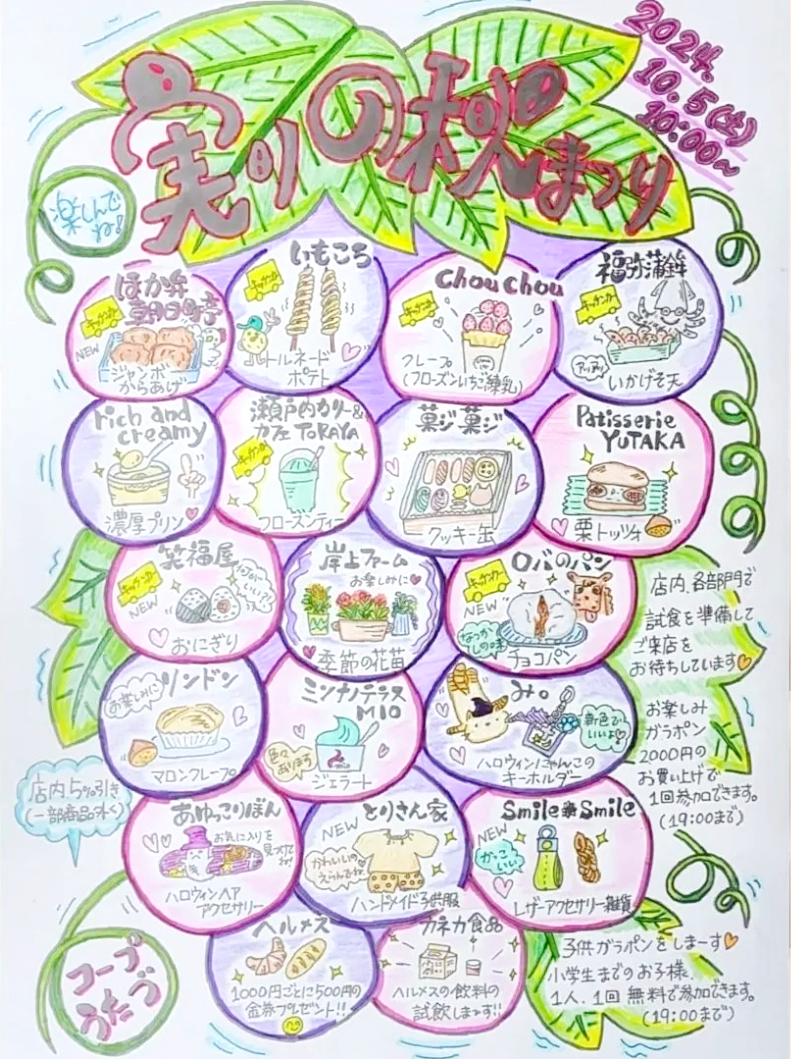 2024.
10.5(土)
10:00~
実りの秋まつり
楽しんで
ね!
ほか弁
朝日町亭
キッチンカー
NEW
ジャンボ
からあげ
いもこち
キッチンカー
トルネード
ポテト
chou chou
キッチンカー
クレープ
(フローズンいちご練乳)
福弥蒲鉾
キッチンカー
アツアツ
いかげそ天
rich and
creamy
濃厚プリン
瀬戸内カリー&
カフェ ToRAYA
キッチンカー
フローズンティー
菓ジ菓ジ
クッキー缶
Patisserie
YUTAKA
栗トッツォ
笑福屋
キッチンカー
NEW
おにぎり
岸上ファーム
お楽しみに
季節の花苗
ロバのパン
キッチンカー
NEW
なつか
しの味
チョコパン
店内、各部門で
試食を準備して
ご来店を
お待ちしています
リンドン
お楽しみに
マロンクレープ
ミンナノテラス
MIO
色々
あります
ジェラート
み。
新色でい
いよ
ハロウィンにゃんこの
キーホルダー
お楽しみ
ガラポン
2000円の
お買い上げで
1回参加できます。
(19:00まで)
店内5%引き
(一部商品除く)
あゆっこりぼん
お気に入りを
見つけて
ね
ハロウィンヘア
アクセサリー
とりさん家
NEW
かわいいの
えらんでね
ハンドメイド子供服
Smile Smile
NEW
かっこ
いい
レザーアクセサリー雑貨
ヘルメス
1000円ごとに500円の
金券プレゼント!!
カネカ食品
ヘルメスの飲料の
試飲しまーす!!
子供ガラポンをしまーす
小学生までのお子様、
1人、1回無料で参加できます。
(19:00まで)
コープ
うたづ